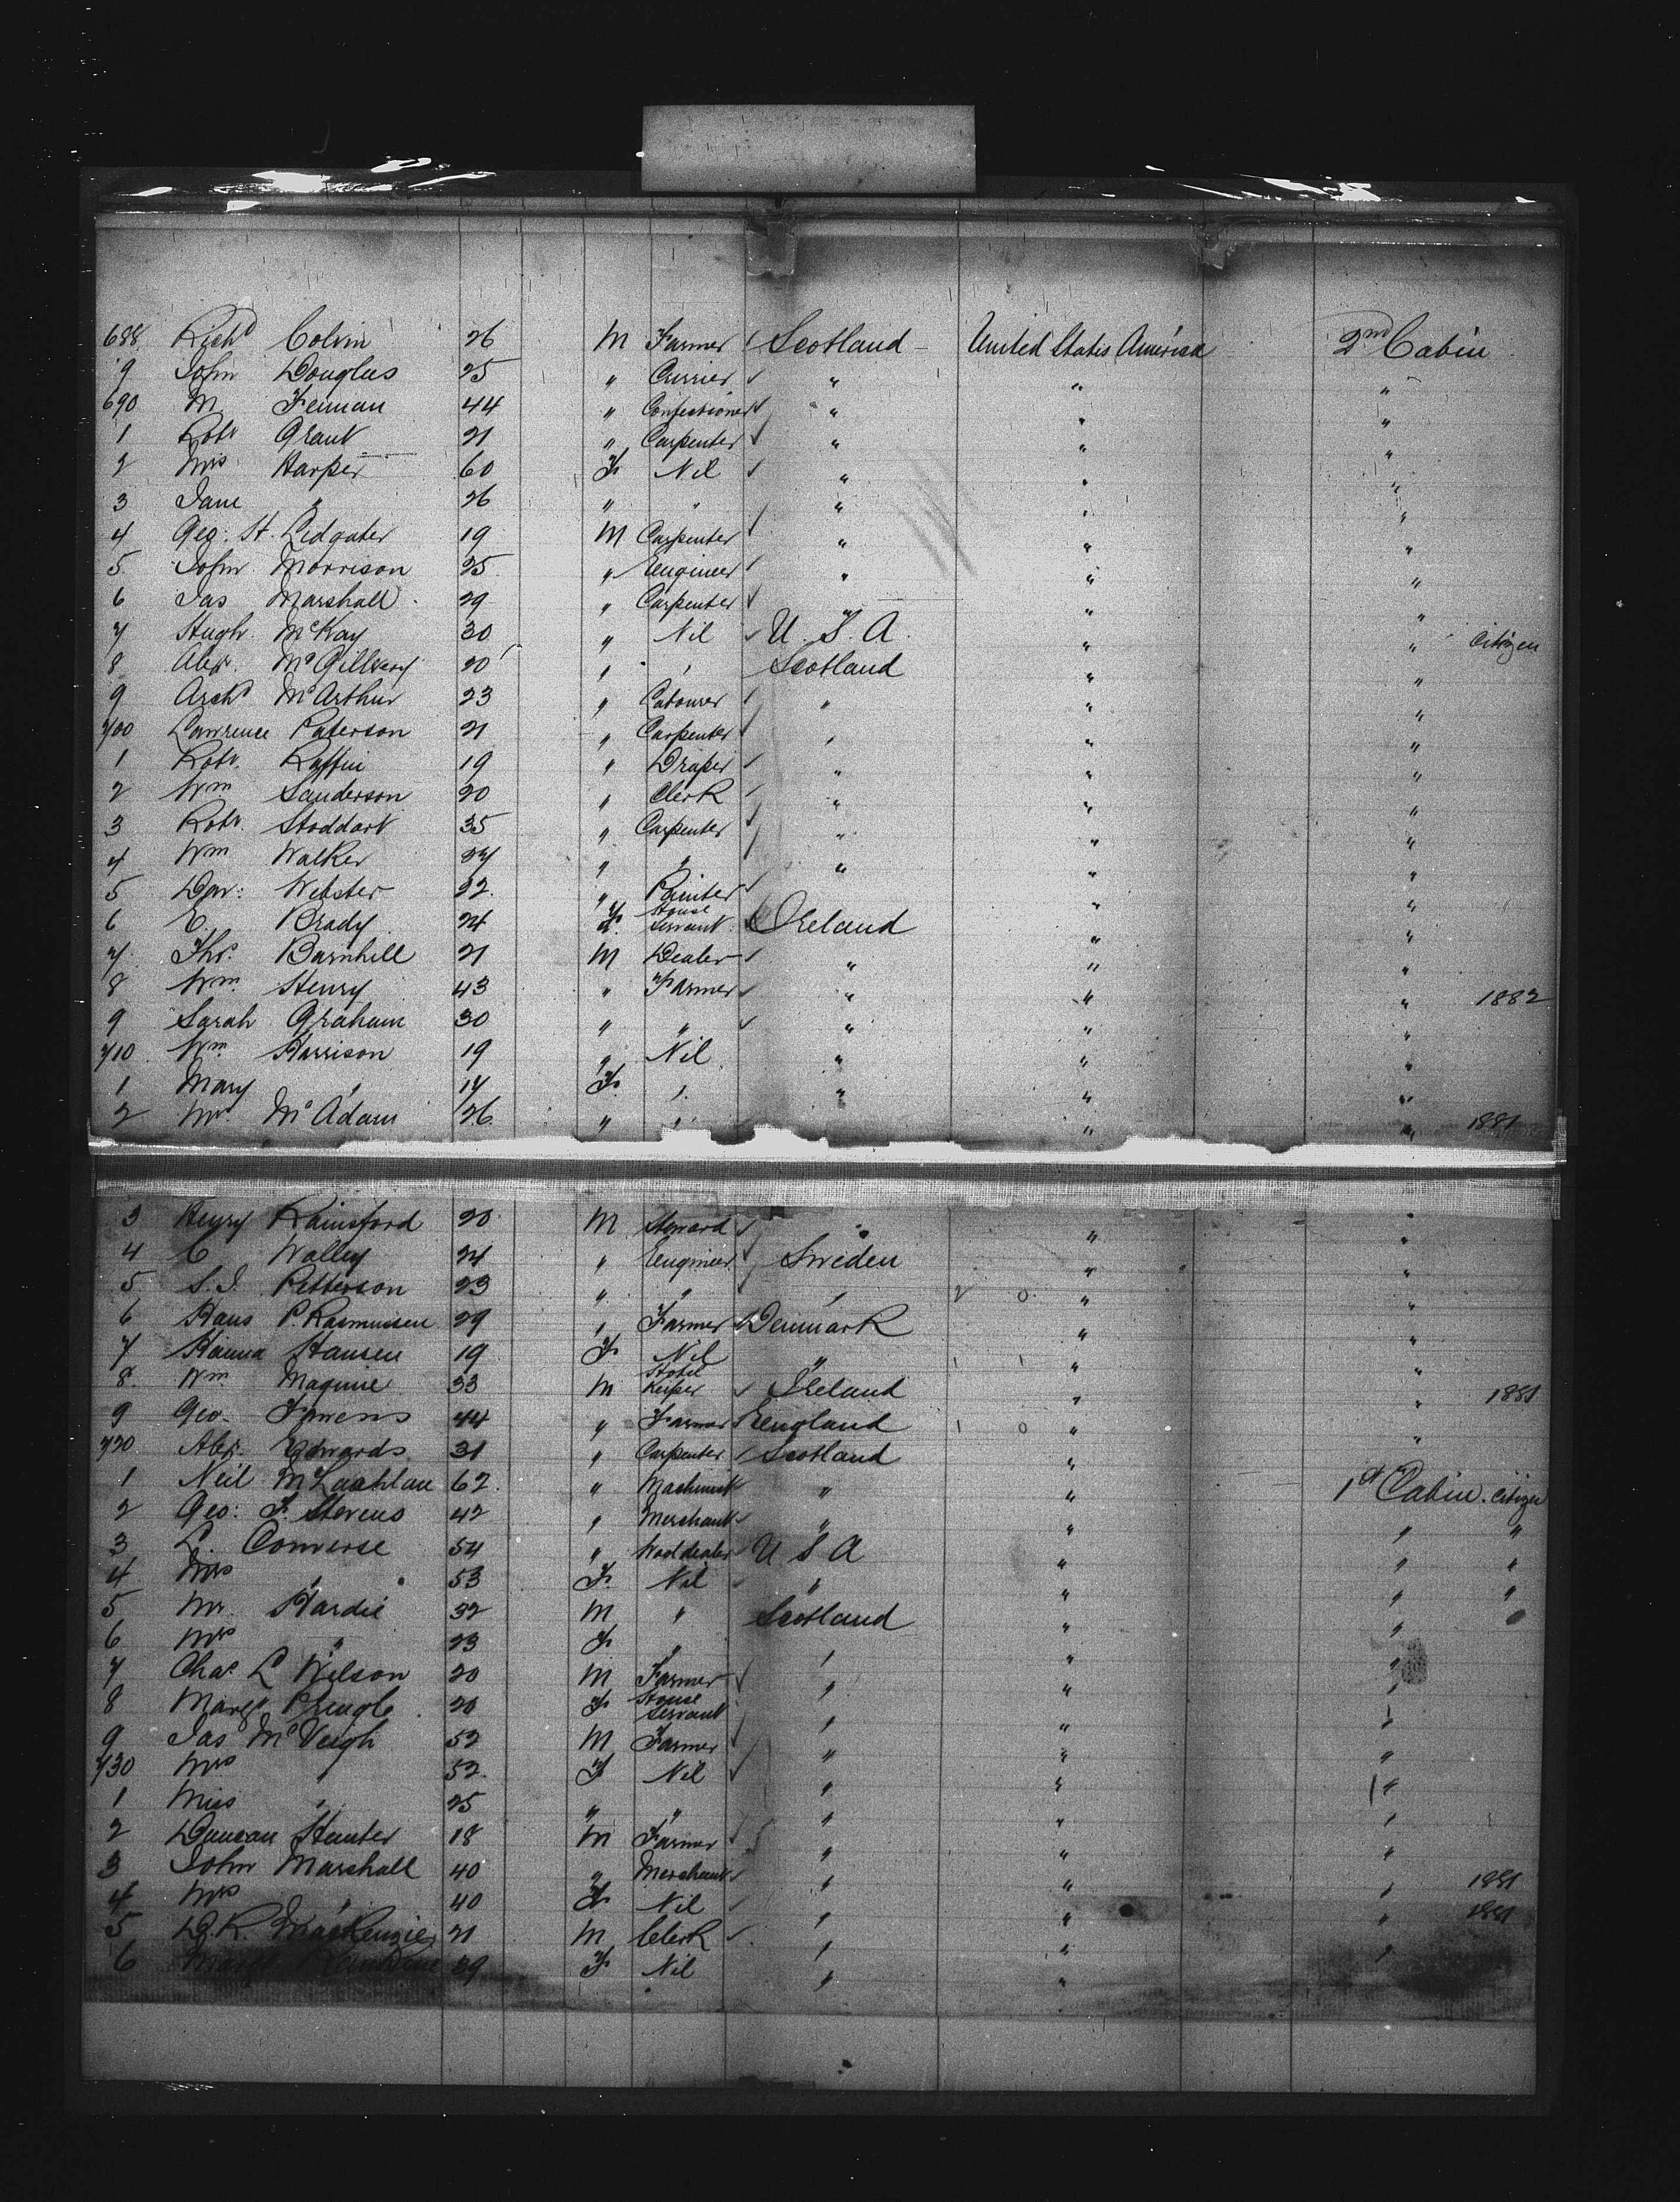 688 Richd Colvin 26 M Farmer Scotland United States America 2nd Cabin
9 John Douglas 25 " Currier " " "
690 M. Feiman 44 " Confectioner " " "
1 Robt Grant 21 " Carpenter " " "
2 Mrs Harper 60 F Nil " " "
3 Jane " 26 " " " " "
4 Geo. H. Ledgater 19 M Carpenter " " "
5 John Morrison 25 " Engineer " " "
6 Jas Marshall 29 " Carpenter " " "
7 Hugh McKay 30 " Nil U. S. A. " " Citizen
8 Alex. McGillvery 20 " " Scotland " "
9 Archd McArthur 23 " Labourer " " "
700 Lawrence Paterson 21 " Carpenter " " "
1 Robt. Raffin 19 " Draper " " "
2 Wm Sanderson 20 " Clerk " " "
3 Robt. Stoddart 35 " Carpenter " " "
4 Wm Walker 27 " " " " "
5 Dav: Webster 22 " Painter " " "
6 E. Brady 24 F. House Servant Ireland " "
7 Thos. Barnhill 21 M Dealer " " "
8 Wm. Henry 43 " Farmer " " " 1882
9 Sarah Graham 30 " " " " "
710 Wm Harrison 19 " Nil " " "
1 Mary " 17 F. " " " "
2 McAdam 26 " " " " " 1881
3 Henry Rainsford 20 M Steward " " "
4 C Walley 24 " Engineer Sweden " "
5 S. J. Petterson 23 " " " 2 0 " "
6 Hans P. Rasmussen 29 " Farmer Denmark " "
7 Hanna Hansen 19 F Nil " 1 1 " "
8 Wm. Maguire 33 M Hotel Keeper Ireland " " 1881
9 Geo. 44 " Farmer England 1 0 " "
720 Alex. Edwards 31 " Carpenter Scotland "
1 Neil McLachlan 62 " Machinist " " 1st Cabin Citizen
2 Geo: F. Stevens 42 " Merchant " " " "
3 L. Converse 54 " Wool dealer U S A " " "
4 Mrs " 53 F. Nil " " " "
5 Mr. Hardie 32 M " Scotland " "
6 Mrs " 23 F " " " "
7 Chas. L Wilson 20 M Farmer " " "
8 Margt Pringle 20 F House Servant " " "
9 Jas McVeigh 52 M Farmer " " "
730 Mrs " 52 F Nil " " "
1 Miss " 25 " " " " "
2 Duncan Hunter 18 M Farmer " " "
3 John Marshall 40 " Merchant " " " 1881
4 Mrs " 40 F Nil " " " 1881
5 D. R. MacKenzie 21 M Clerk " " "
6 Margt Rankine 39 F Nil " "